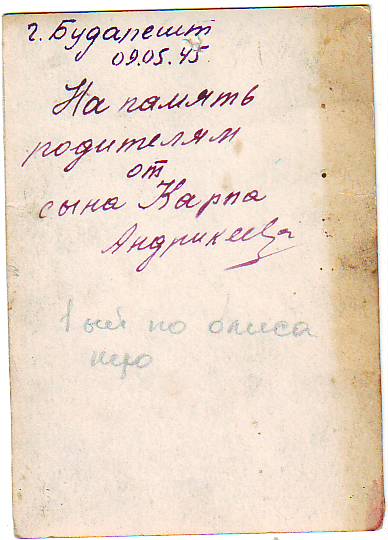 г. Будапешт
09.05.45
На память
родителям
от
сына Карпа
Андрикеева
1 ый по